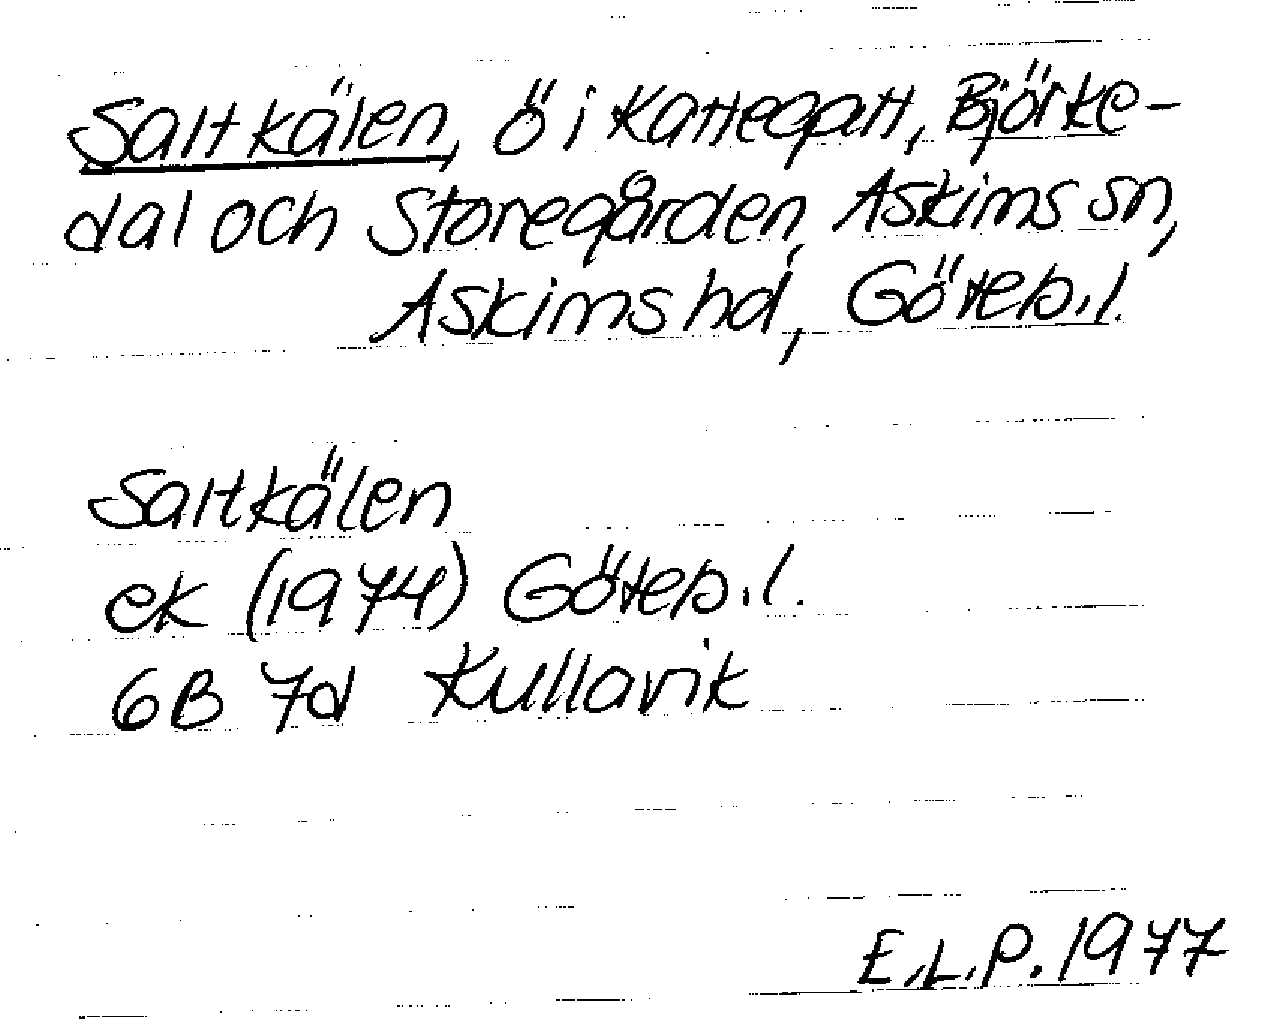 Saltkälen, ö i Kattegatt, Björke-
dal och Storegården, Askims sn,
Askims hd, Göteb.l.
Saltkälen
ek (1974) Göteb.l.
6B 7d Kullavik
E.L.P. 1977